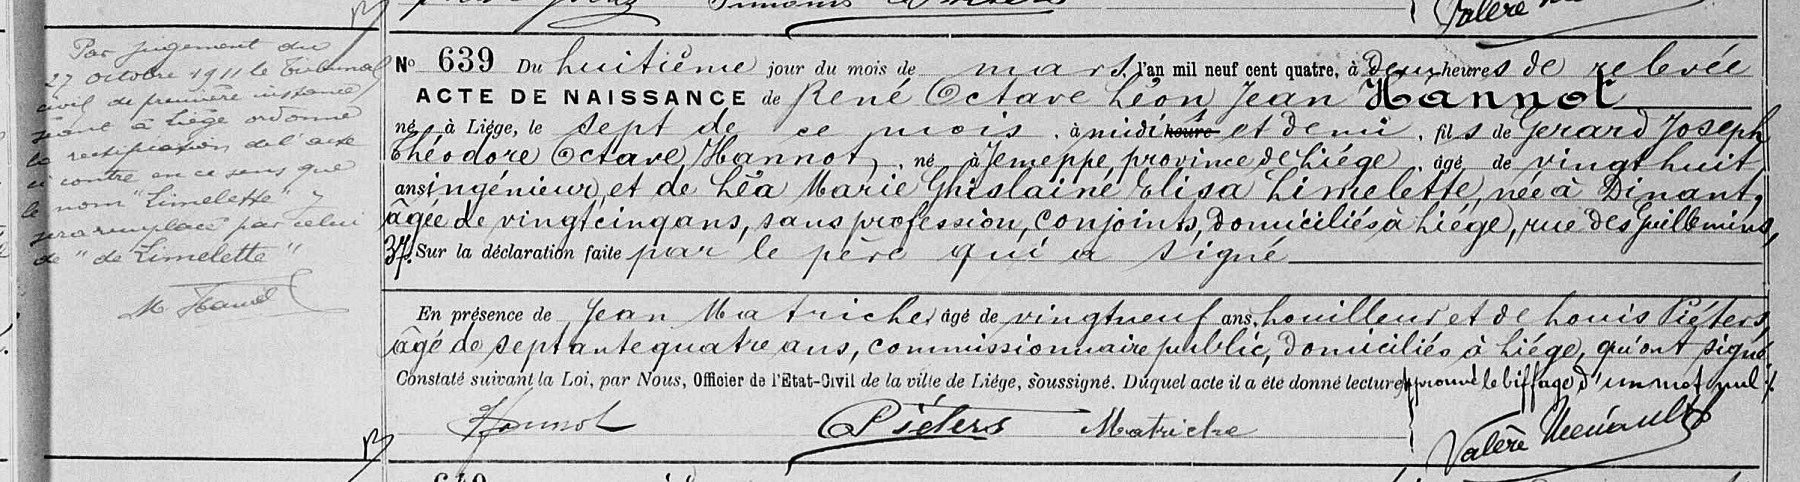 Par jugement du
27 octobre 1911 le Tribunal
civil de première instance
séant à Liège ordonne
la rectification de l'acte
ci contre en ce sens que
le nom "Limelette"
sera remplacé par celui
de "de Limelette"
Nº 639 Du huitième jour du mois de mars, l'an mil neuf cent quatre, à deux heures de relevée
ACTE DE NAISSANCE de René Octave Léon Jean Hannot
né à Liége, le sept de ce mois, à midi heure et demi, fils de Gerard Joseph
Théodore Octave Hannot, né à Jemeppe, province de Liége, âgé de vingt huit
ans ingénieur, et de Léa Marie Ghislaine Elisa Limelette, née à Dinant,
âgée de vingt cinq ans, sans profession, conjoints, domiciliés à Liége, rue des Guillemins,
37. Sur la déclaration faite par le père qui a signé
En présence de Jean Matriche, âgé de vingt neuf ans, houilleur et de Louis Piéters,
âgé de septante quatre ans, commissionnaire public, domiciliés à Liége, qui ont signé.
Constaté suivant la Loi, par Nous, Officier de l'Etat-Civil de la ville de Liége, soussigné. Duquel acte il a été donné lecture, approuvé le biffage d'un mot nul
Hannot Piéters Matriche Valère